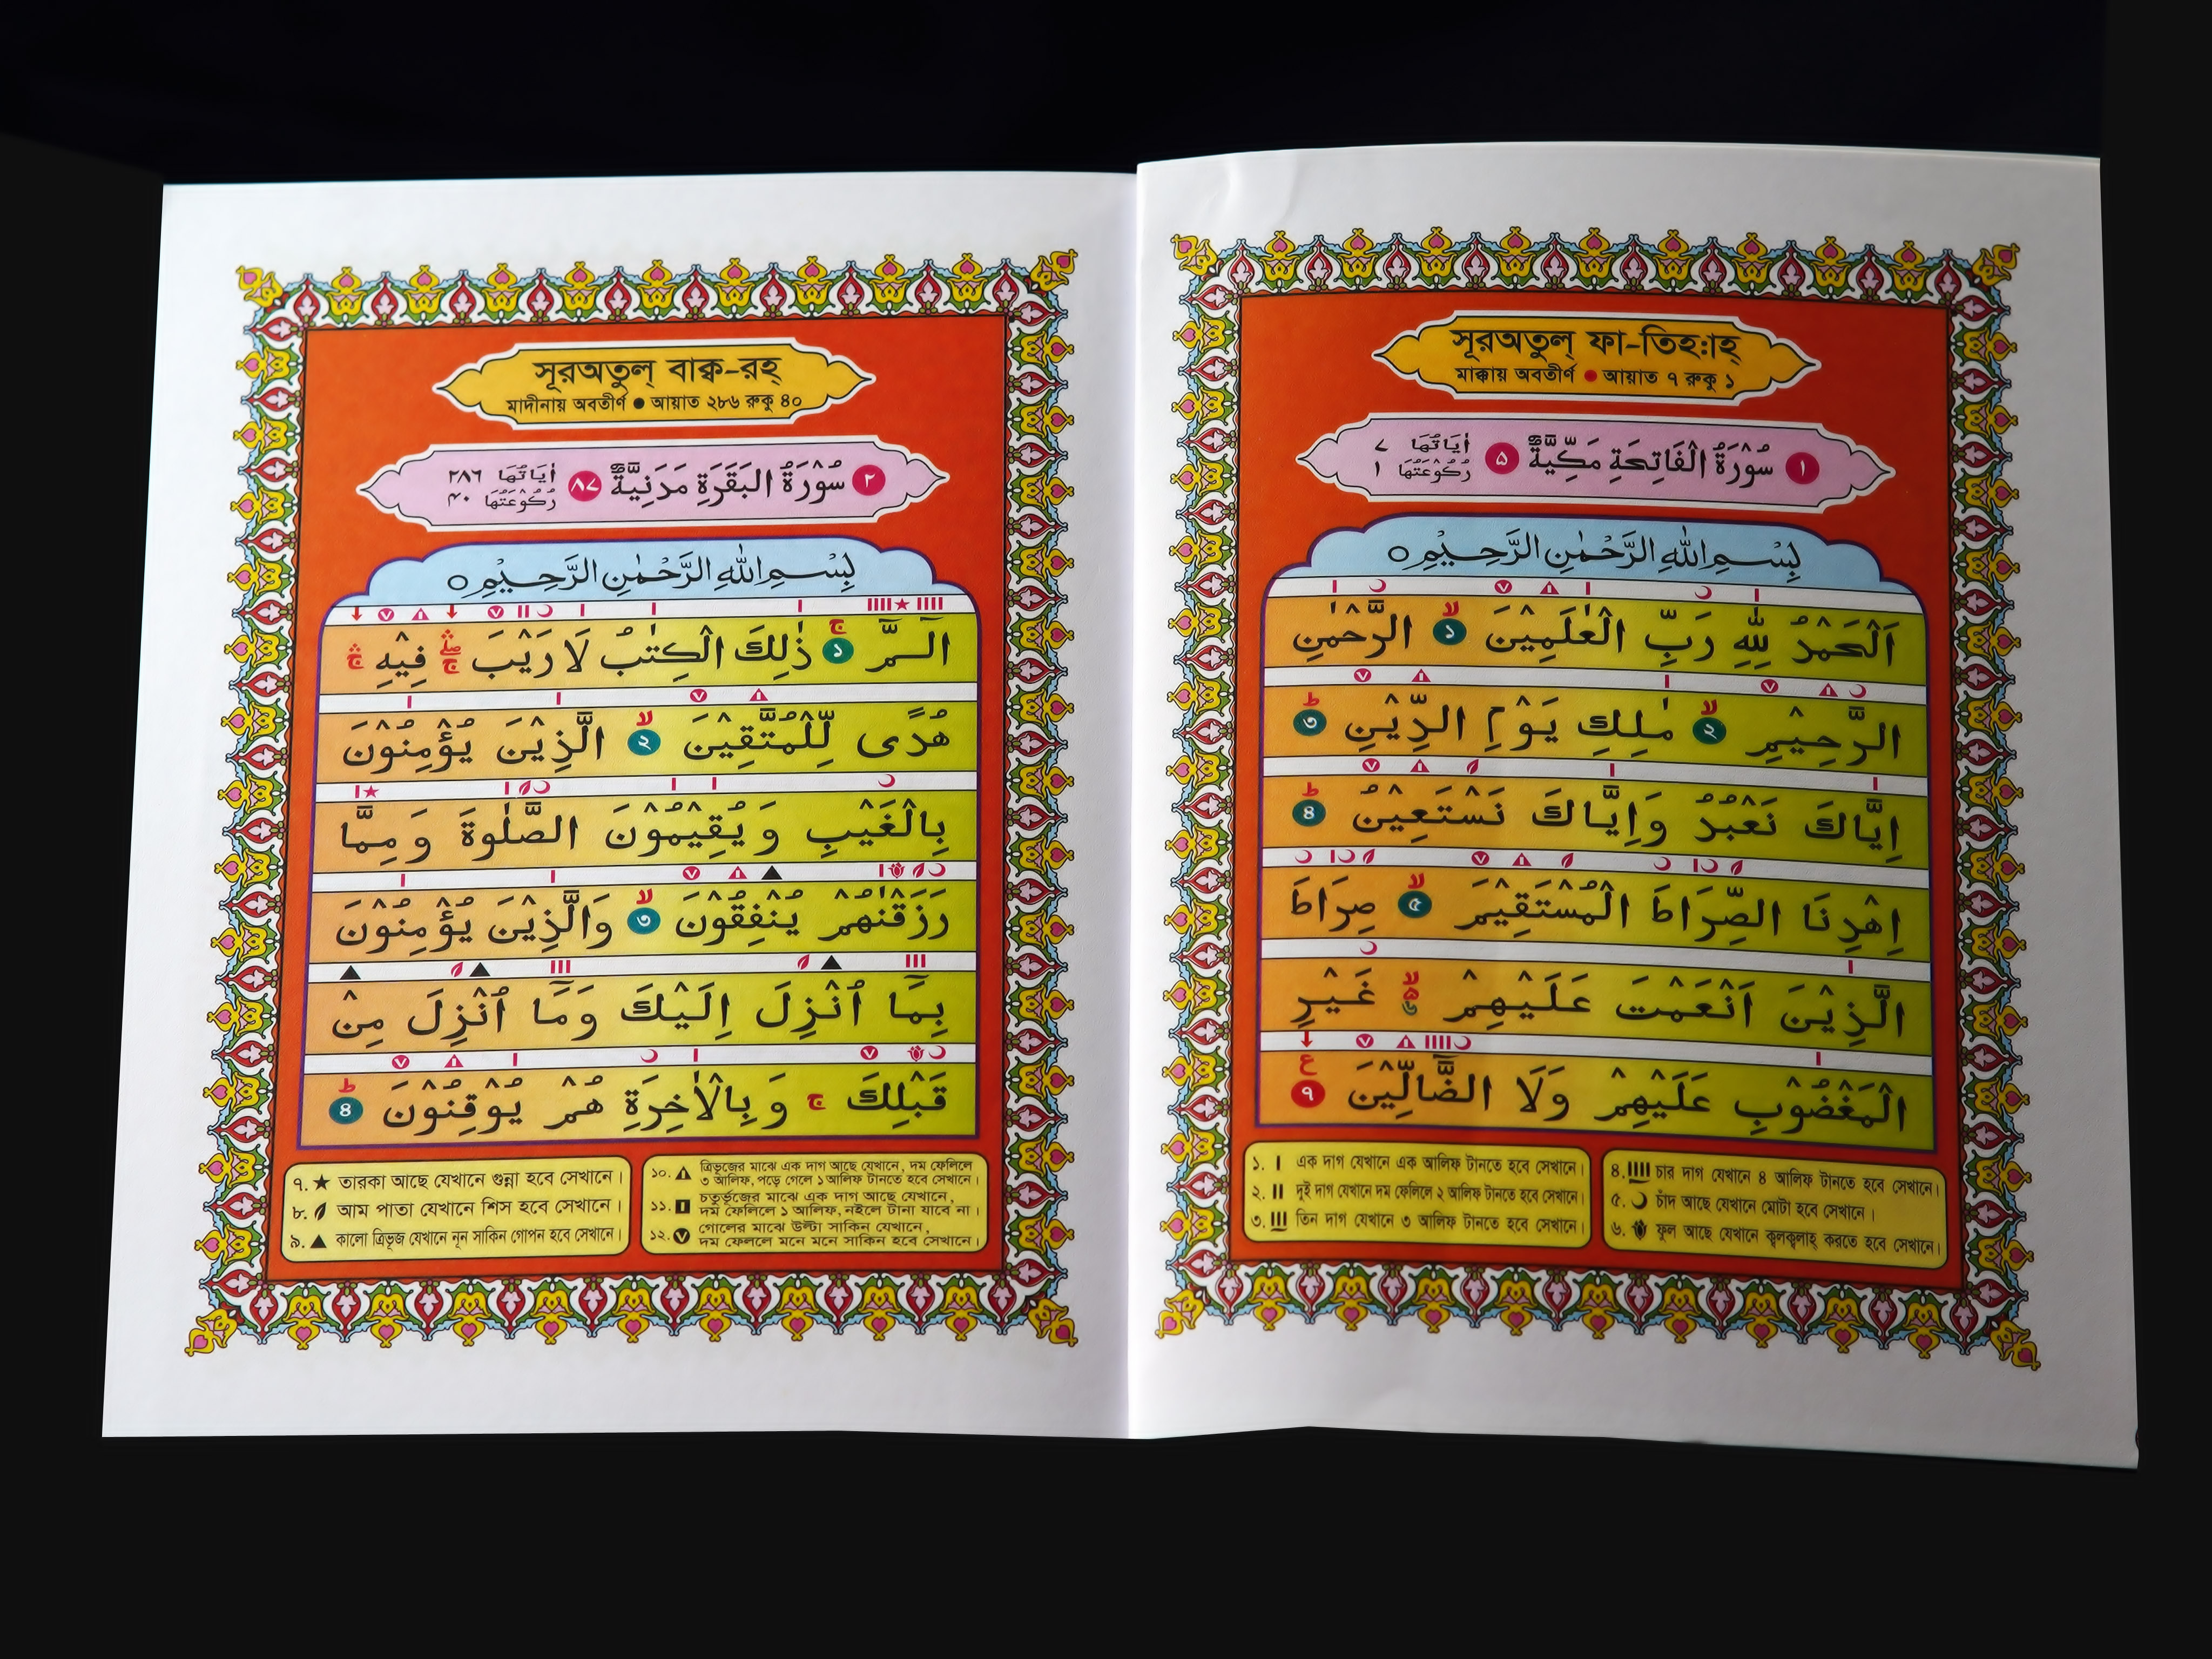 সূরঅতুল্ ফা-তিহ:াহ্
মাক্কায় অবতীর্ণ ● আয়াত ৭ রুকু ১
١ سُوْرَةُ الْفَاتِحَةِ مَكِّيَّةٌ ٥ اٰيَاتُهَا ٧ رُكُوْعَتُهَا ١
بِسْمِ اللّٰهِ الرَّحْمٰنِ الرَّحِيْمِ ○
اَلْحَمْدُ لِلّٰهِ رَبِّ الْعٰلَمِيْنَ ১ ۙ الرَّحْمٰنِ
الرَّحِيْمِ ২ ۙ مٰلِكِ يَوْمِ الدِّيْنِ ৩ ؕ
اِيَّاكَ نَعْبُدُ وَاِيَّاكَ نَسْتَعِيْنُ ৪ ؕ
اِهْدِنَا الصِّرَاطَ الْمُسْتَقِيْمَ ৫ ۙ صِرَاطَ
الَّذِيْنَ اَنْعَمْتَ عَلَيْهِمْ غَيْرِ
الْمَغْضُوْبِ عَلَيْهِمْ وَلَا الضَّآلِّيْنَ ৭ ع
১. I এক দাগ যেখানে এক আলিফ টানতে হবে সেখানে।
২. II দুই দাগ যেখানে দম ফেলিলে ২ আলিফ টানতে হবে সেখানে।
৩. III তিন দাগ যেখানে ৩ আলিফ টানতে হবে সেখানে।
৪. IIII চার দাগ যেখানে ৪ আলিফ টানতে হবে সেখানে।
৫. ☽ চাঁদ আছে যেখানে মোটা হবে সেখানে।
৬. ফুল আছে যেখানে ক্বলক্বলাহ্ করতে হবে সেখানে।
সূরঅতুল্ বাক্ব-রহ্
মাদীনায় অবতীর্ণ ● আয়াত ২৮৬ রুকু ৪০
٢ سُوْرَةُ الْبَقَرَةِ مَدَنِيَّةٌ ٨٧ اٰيَاتُهَا ٢٨٦ رُكُوْعَتُهَا ٤٠
بِسْمِ اللّٰهِ الرَّحْمٰنِ الرَّحِيْمِ ○
الٓـمّٓ ১ ۚ ذٰلِكَ الْكِتٰبُ لَا رَيْبَ فِيْهِ
هُدًى لِّلْمُتَّقِيْنَ ২ ۙ الَّذِيْنَ يُؤْمِنُوْنَ
بِالْغَيْبِ وَيُقِيْمُوْنَ الصَّلٰوةَ وَمِمَّا
رَزَقْنٰهُمْ يُنْفِقُوْنَ ৩ ۙ وَالَّذِيْنَ يُؤْمِنُوْنَ
بِمَآ اُنْزِلَ اِلَيْكَ وَمَآ اُنْزِلَ مِنْ
قَبْلِكَ ج وَبِالْاٰخِرَةِ هُمْ يُوْقِنُوْنَ ৪ ؕ
৭. ★ তারকা আছে যেখানে গুন্না হবে সেখানে।
৮. আম পাতা যেখানে শিস হবে সেখানে।
৯. ▲ কালো ত্রিভূজ যেখানে নূন সাকিন গোপন হবে সেখানে।
১০. ত্রিভূজের মাঝে এক দাগ আছে যেখানে, দম ফেলিলে
৩ আলিফ, পড়ে গেলে ১ আলিফ টানতে হবে সেখানে।
১১. চতুর্ভূজের মাঝে এক দাগ আছে যেখানে,
দম ফেলিলে ১ আলিফ, নইলে টানা যাবে না।
১২. গোলের মাঝে উল্টা সাকিন যেখানে,
দম ফেললে মনে মনে সাকিন হবে সেখানে।